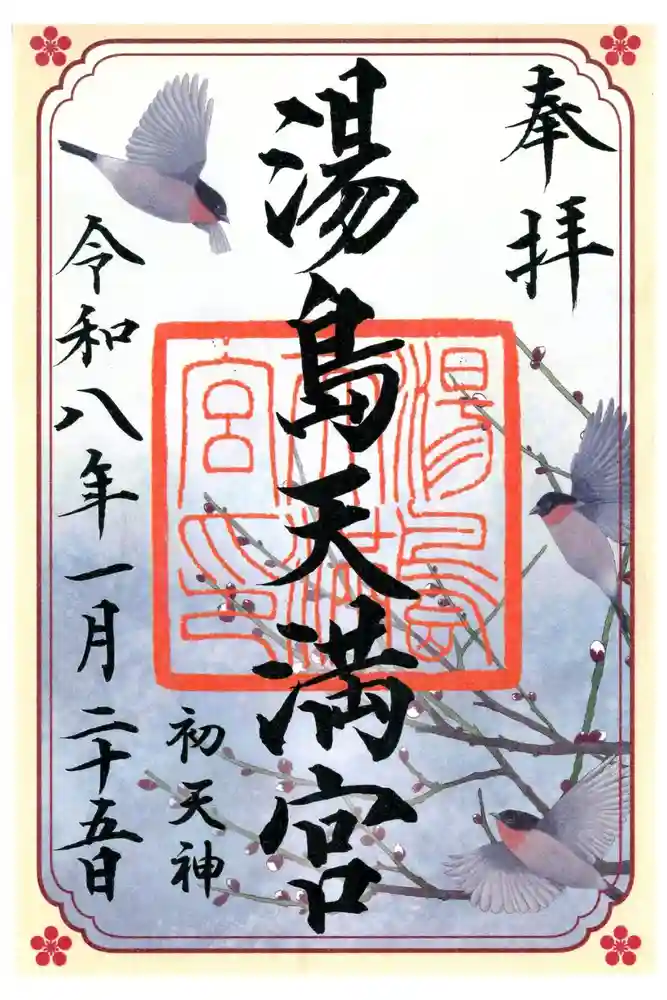 奉拝
湯島天満宮
湯島天満宮印
初天神
令和八年一月二十五日